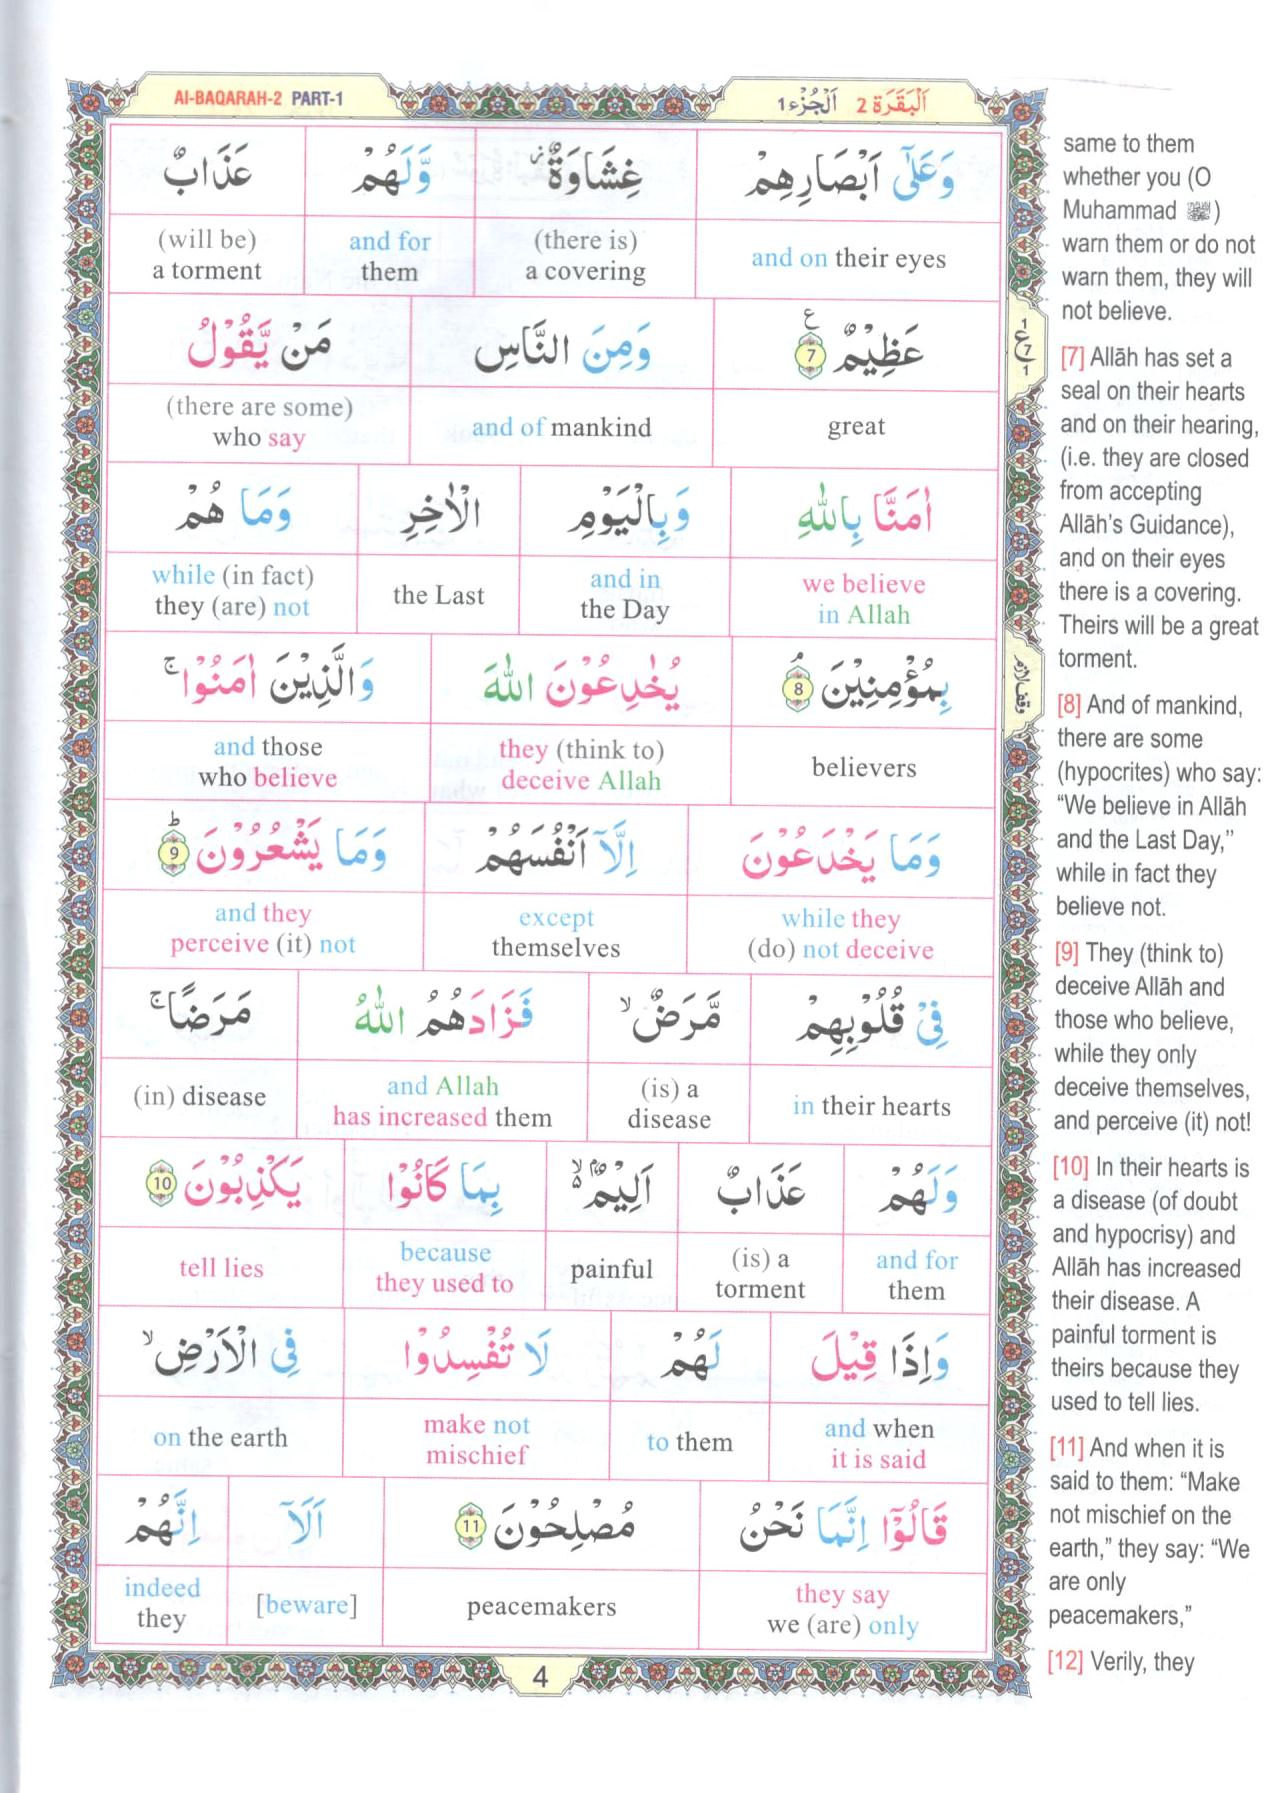 Al-BAQARAH-2 PART-1
اَلْبَقَرَة 2 اَلْجُزْء 1
وَعَلٰٓى اَبْصَارِهِمْ غِشَاوَةٌ وَّلَهُمْ عَذَابٌ
and on their eyes
(there is) a covering
and for them
(will be) a torment
عَظِيْمٌ 7 وَمِنَ النَّاسِ مَنْ يَّقُوْلُ
great
and of mankind
(there are some) who say
اٰمَنَّا بِاللّٰهِ وَبِالْيَوْمِ الْاٰخِرِ وَمَا هُمْ
we believe in Allah
and in the Day
the Last
while (in fact) they (are) not
بِمُؤْمِنِيْنَ 8 يُخٰدِعُوْنَ اللّٰهَ وَالَّذِيْنَ اٰمَنُوْا ۚ
believers
they (think to) deceive Allah
and those who believe
وَمَا يَخْدَعُوْنَ اِلَّآ اَنْفُسَهُمْ وَمَا يَشْعُرُوْنَ 9
while they (do) not deceive
except themselves
and they perceive (it) not
فِيْ قُلُوْبِهِمْ مَّرَضٌ ۙ فَزَادَهُمُ اللّٰهُ مَرَضًا ۚ
in their hearts
(is) a disease
and Allah has increased them
(in) disease
وَلَهُمْ عَذَابٌ اَلِيْمٌ ۢ ۙ بِمَا كَانُوْا يَكْذِبُوْنَ 10
and for them
(is) a torment
painful
because they used to
tell lies
وَاِذَا قِيْلَ لَهُمْ لَا تُفْسِدُوْا فِى الْاَرْضِ ۙ
and when it is said
to them
make not mischief
on the earth
قَالُوْٓا اِنَّمَا نَحْنُ مُصْلِحُوْنَ 11 اَلَآ اِنَّهُمْ
they say we (are) only
peacemakers
[beware]
indeed they
4
وقف لازم
same to them
whether you (O
Muhammad ﷺ)
warn them or do not
warn them, they will
not believe.
[7] Allāh has set a
seal on their hearts
and on their hearing,
(i.e. they are closed
from accepting
Allāh's Guidance),
and on their eyes
there is a covering.
Theirs will be a great
torment.
[8] And of mankind,
there are some
(hypocrites) who say:
“We believe in Allāh
and the Last Day,”
while in fact they
believe not.
[9] They (think to)
deceive Allāh and
those who believe,
while they only
deceive themselves,
and perceive (it) not!
[10] In their hearts is
a disease (of doubt
and hypocrisy) and
Allāh has increased
their disease. A
painful torment is
theirs because they
used to tell lies.
[11] And when it is
said to them: “Make
not mischief on the
earth,” they say: “We
are only
peacemakers,”
[12] Verily, they